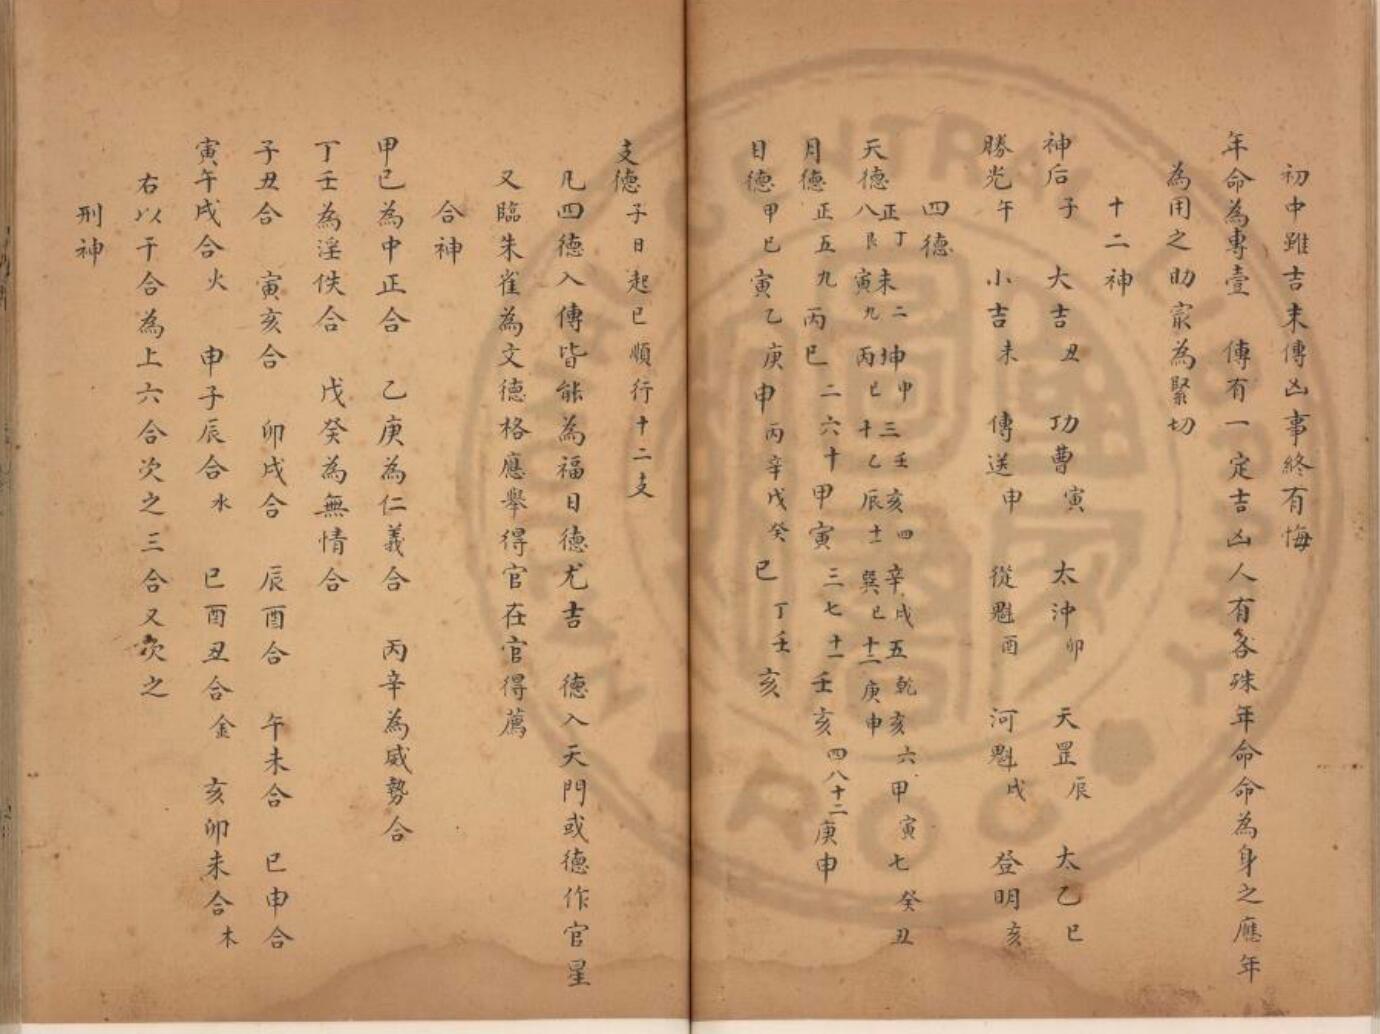 初中雖吉末傳凶事終有悔
年命為專壹 傳有一定吉凶人有各殊年命命為身之應年
為用之助㝡為緊切
十二神
神后子 大吉丑 功曹寅 太沖卯 天罡辰 太乙巳
勝光午 小吉未 傳送申 從魁酉 河魁戌 登明亥
四德
天德正丁未二坤申三壬亥四辛戌五乾亥六甲寅七癸丑
八艮寅九丙巳十乙辰十一巽巳十二庚申
月德正五九丙巳二六十甲寅三七十一壬亥四八十二庚申
日德甲巳寅乙庚申丙辛戊癸巳丁壬亥
支德子日起巳順行十二支
凡四德入傳皆能為福日德尤吉 德入天門或德作官星
又臨朱雀為文德格應舉得官在官得薦
合神
甲巳為中正合 乙庚為仁義合 丙辛為威勢合
丁壬為淫佚合 戊癸為無情合
子丑合 寅亥合 卯戌合 辰酉合 午未合 巳申合
寅午戌合火 申子辰合水 巳酉丑合金 亥卯未合木
右以干合為上六合次之三合又次之
刑神